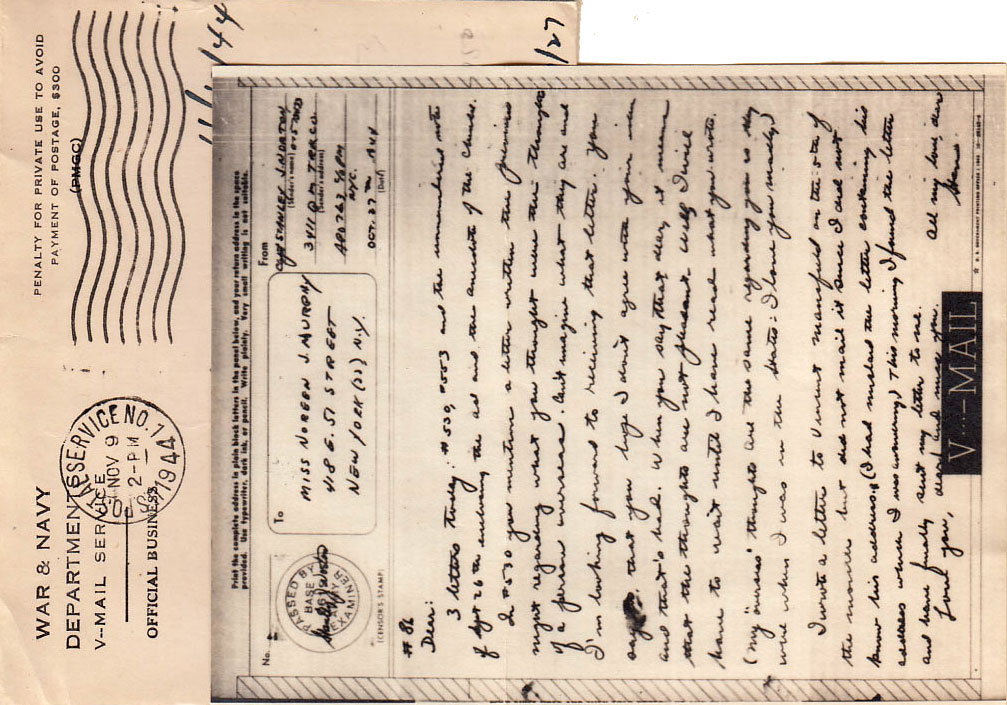 WAR & NAVY
DEPARTMENTS
V-MAIL SERVICE
OFFICIAL BUSINESS
U.S. POSTAL SERVICE NO. 1
NOV 9
2-PM
1944
PENALTY FOR PRIVATE USE TO AVOID
PAYMENT OF POSTAGE, $300
(PMGC)
Print the complete address in plain block letters in the panel below, and your return address in the space
provided. Use typewriter, dark ink, or pencil. Write plainly. Very small writing is not suitable.
No.
PASSED BY
BASE
ARMY
EXAMINER
(CENSOR'S STAMP)
To
MISS NOREEN J. MURPHY
418 E. 51 STREET
NEW YORK (22) N.Y.
From
STANLEY J. NORTON
(Sender's name)
3411 O M TRK CO
(Sender's address)
APO 763 % PM
NYC.
OCT. 27 TH 1944
(Date)
# 86
Dear:
3 letters today: # 530, # 553 and the unnumbered note
of Sept 26th enclosing the ad and the anecdote of the
In #530 you mention a letter written the previous
night regarding what you thought were the thoughts
of a person overseas. Can't imagine what they are and
I'm looking forward to receiving that letter. You
say that you hope I don't agree with you in
and that's bad. When you say that dear, it means
that the thoughts are not pleasant. Well I will
have to wait until I have read what you wrote.
(My "overseas" thoughts are the same regarding you as they
were when I was in the States: I love you madly.)
I wrote a letter to Vincent Manfredi on the 5th of
the month but did not mail it since I did not
know his address. (I had mislaid the letter containing his
address where I was) This morning I found the letter
and have finally sent my letter to me.
Love you, dear, and miss you.
All my love, dear
Stan
V···—MAIL
U. S. GOVERNMENT PRINTING OFFICE : 1943